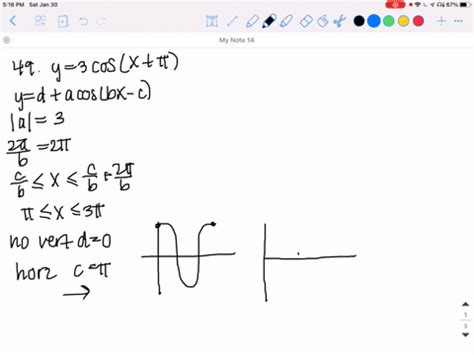 5:18 PM Sat Jan 30
67%
My Note 14
49. y=3cos(x+π)
y=d+acos(bx-c)
|a|=3
2π/b=2π
c/b ≤ x ≤ c/b + 2π/b
π ≤ x ≤ 3π
no vert d=0
horz c=π
→
1
3